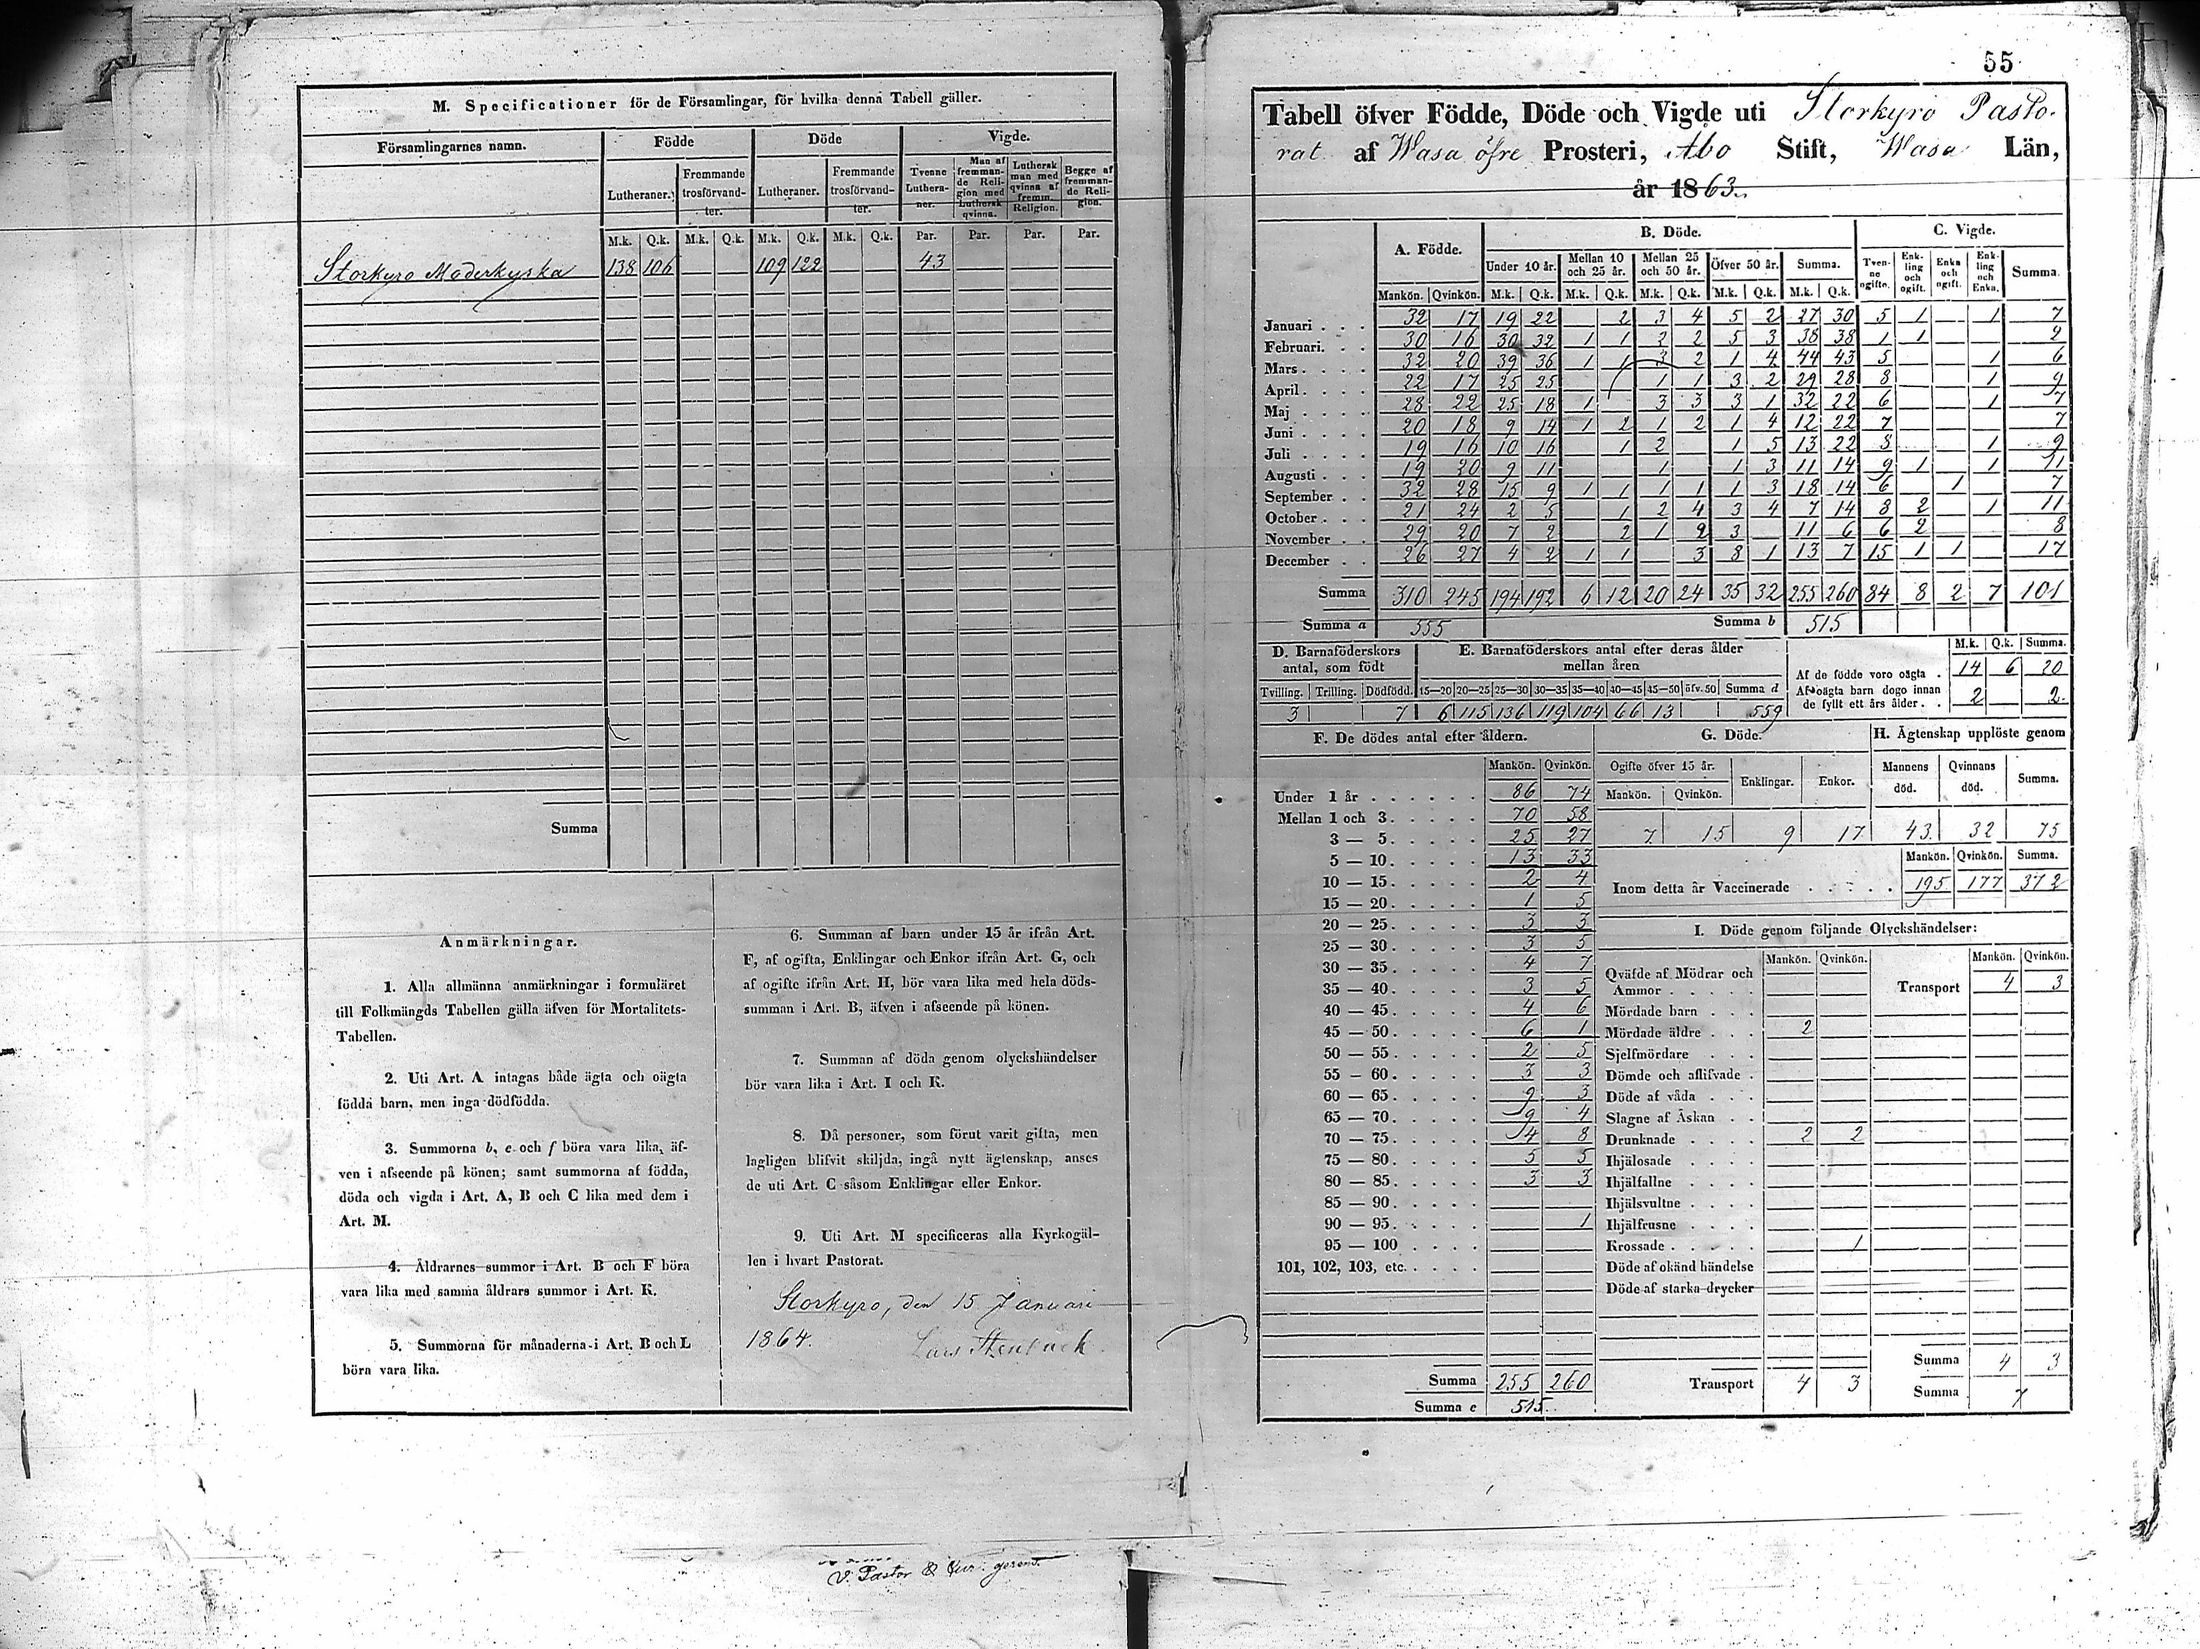 M. Specificationer för de Församlingar, för hvilka denna Tabell gäller.
Församlingarnes namn. Födde Döde Vigde.
Lutheraner. Fremmande trosförvandter. Lutheraner. Fremmande trosförvandter. Tvenne Lutheraner. Man af fremmande Religion med Luthersk qvinna. Luthersk man med qvinna af fremm. Religion. Begge af fremmande Religion.
M.k. Q.k. M.k. Q.k. M.k. Q.k. M.k. Q.k. Par. Par. Par. Par.
Storkyro Moderkyrka 138 106 109 122 43
Summa
Anmärkningar.
1. Alla allmänna anmärkningar i formuläret
till Folkmängds Tabellen gälla äfven för Mortalitets-
Tabellen.
2. Uti Art. A intagas både ägta och oägta
födda barn, men inga dödfödda.
3. Summorna b, e och f böra vara lika, äf-
ven i afseende på könen; samt summorna af födda,
döda och vigda i Art. A, B och C lika med dem i
Art. M.
4. Åldrarnes summor i Art. B och F böra
vara lika med samma åldrars summor i Art. K.
5. Summorna för månaderna i Art. B och L
böra vara lika.
6. Summan af barn under 15 år ifrån Art.
F, af ogifta, Enklingar och Enkor ifrån Art. G, och
af ogifte ifrån Art. H, bör vara lika med hela döds-
summan i Art. B, äfven i afseende på könen.
7. Summan af döda genom olyckshändelser
bör vara lika i Art. I och K.
8. Då personer, som förut varit gifta, men
lagligen blifvit skiljda, ingå nytt ägtenskap, anses
de uti Art. C såsom Enklingar eller Enkor.
9. Uti Art. M specificeras alla Kyrkogäl-
len i hvart Pastorat.
Storkyro, den 15 Januari
1864. Lars Stenbäck.
V. Pastor
55
Tabell öfver Födde, Döde och Vigde uti Storkyro Pasto-
rat af Wasa öfre Prosteri, Åbo Stift, Wasa Län,
år 1863.
A. Födde. B. Döde. C. Vigde.
Under 10 år. Mellan 10 och 25 år. Mellan 25 och 50 år. Öfver 50 år. Summa. Tvenne ogifte. Enkling och ogift. Enka och ogift. Enkling och Enka. Summa.
Mankön. Qvinkön. M.k. Q.k. M.k. Q.k. M.k. Q.k. M.k. Q.k. M.k. Q.k.
Januari 32 17 19 22 2 3 4 5 2 27 30 5 1 1 7
Februari. 30 16 30 32 1 1 2 2 5 3 38 38 1 1 2
Mars 32 20 39 36 1 1 3 2 1 4 44 43 5 1 6
April 22 17 25 25 1 1 3 2 29 28 8 1 9
Maj 28 22 25 18 1 3 3 3 1 32 22 6 1 7
Juni 20 18 9 14 1 2 1 2 1 4 12 22 7 7
Juli 19 16 10 16 1 2 1 5 13 22 8 1 9
Augusti 19 20 9 11 1 1 3 11 14 9 1 1 11
September 32 28 15 9 1 1 1 1 1 3 18 14 6 1 7
October 21 24 2 5 1 2 4 3 4 7 14 8 2 1 11
November 29 20 7 2 2 1 2 3 11 6 6 2 8
December 26 27 4 2 1 1 3 8 1 13 7 15 1 1 17
Summa 310 245 194 192 6 12 20 24 35 32 255 260 84 8 2 7 101
Summa a 555 Summa b 515
D. Barnaföderskors antal, som födt
Tvilling. Trilling. Dödfödd.
3 7
E. Barnaföderskors antal efter deras ålder mellan åren
15—20 20—25 25—30 30—35 35—40 40—45 45—50 öfv. 50 Summa d
6 115 136 119 104 66 13 559
M.k. Q.k. Summa.
Af de födde voro oägta 14 6 20
Af oägta barn dogo innan
de fyllt ett års ålder 2 2
F. De dödes antal efter åldern.
Mankön. Qvinkön.
Under 1 år 86 74
Mellan 1 och 3 70 58
3 — 5 25 27
5 — 10 13 33
10 — 15 2 4
15 — 20 1 5
20 — 25 3 3
25 — 30 3 5
30 — 35 4 7
35 — 40 3 5
40 — 45 4 6
45 — 50 6 1
50 — 55 2 5
55 — 60 3 3
60 — 65 9 3
65 — 70 9 4
70 — 75 4 8
75 — 80 5 5
80 — 85 3 3
85 — 90
90 — 95 1
95 — 100
101, 102, 103, etc.
Summa 255 260
Summa e 515
G. Döde.
Ogifte öfver 15 år. Enklingar. Enkor.
Mankön. Qvinkön.
7 15 9 17
H. Ägtenskap upplöste genom
Mannens död. Qvinnans död. Summa.
43 32 75
Mankön. Qvinkön. Summa.
Inom detta år Vaccinerade 195 177 372
I. Döde genom följande Olyckshändelser:
Mankön. Qvinkön. Mankön. Qvinkön.
Qväfde af Mödrar och
Ammor Transport 4 3
Mördade barn
Mördade äldre 2
Sjelfmördare
Dömde och aflifvade
Döde af våda
Slagne af Åskan
Drunknade 2 2
Ihjälosade
Ihjälfallne
Ihjälsvultne
Ihjälfrusne
Krossade 1
Döde af okänd händelse
Döde af starka drycker
Summa 4 3
Transport 4 3 Summa 7